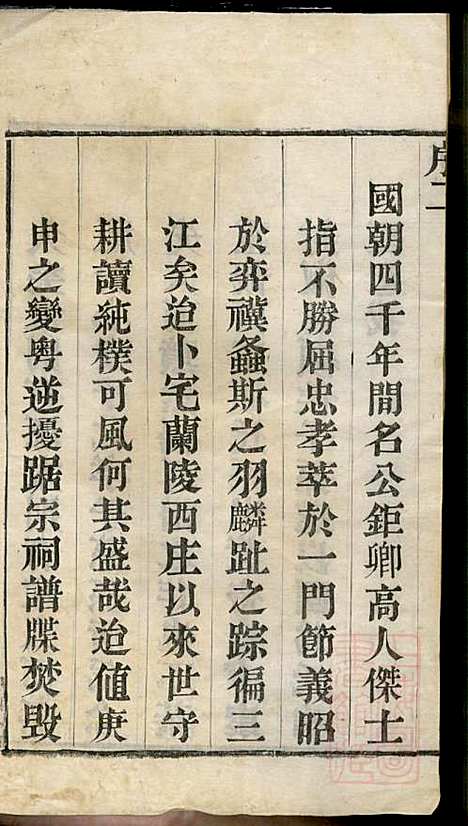 序二
國朝四千年間名公鉅卿高人傑士
指不勝屈忠孝萃於一門節義昭
於弈禩螽斯之羽麟趾之踪徧三
江矣迨卜宅蘭陵西庄以來世守
耕讀純樸可風何其盛哉迨值庚
申之變粵逆擾踞宗祠譜牒焚毀